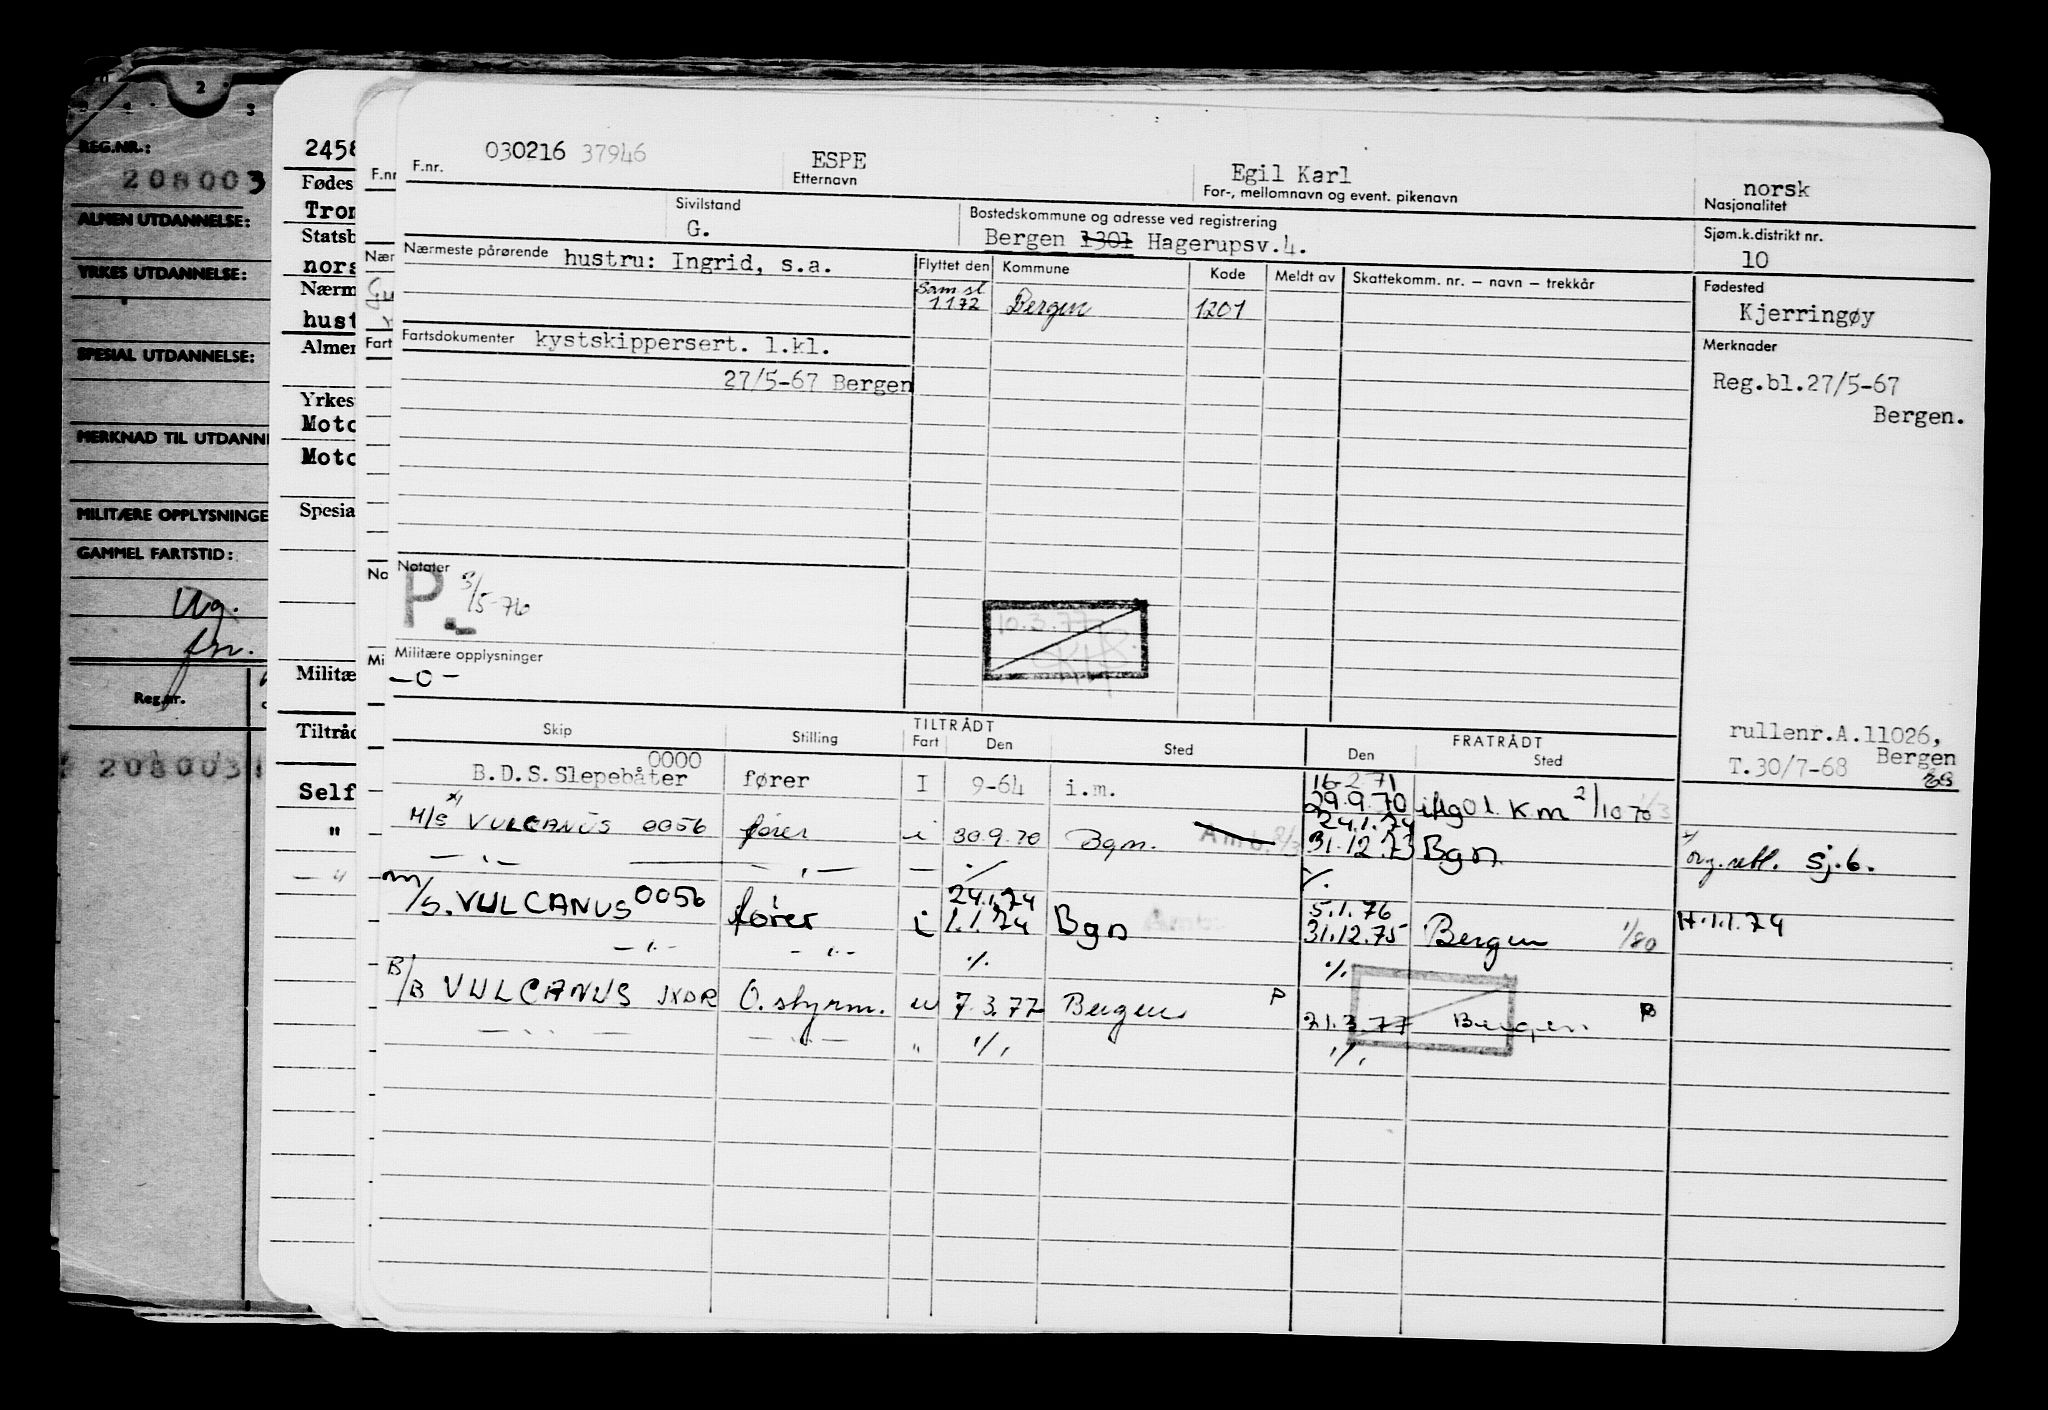 2
4 3
REG.NR.:
208003
ALMEN UTDANNELSE:
YRKES UTDANNELSE:
SPESIAL UTDANNELSE:
MERKNAD TIL UTDANN
MILITÆRE OPPLYSNINGE
GAMMEL FARTSTID:
Reg.nr.
208003
2458
Fødes
Tron
Statsb
nors
Nærm
hust
Almen
Yrkes
Moto
Moto
Spesia
Militæ
Tiltråd
Self
"
F.nr
Nær
Fart
No
Mi
030216 37946 ESPE Egil Karl norsk
F.nr. Etternavn For-, mellomnavn og event. pikenavn Nasjonalitet
Sivilstand Bostedskommune og adresse ved registrering Sjøm.k.distrikt nr.
G. Bergen 1301 Hagerupsv.4. 10
Nærmeste pårørende hustru: Ingrid, s.a. Flyttet den Kommune Kode Meldt av Skattekomm. nr. – navn – trekkår Fødested
Sam st. Kjerringøy
1.1.72 Bergen 1201
Fartsdokumenter kystskippersert. 1.kl. Merknader
27/5-67 Bergen Reg.bl.27/5-67
Bergen.
Notater
P 3/5-76
10.3.77
Militære opplysninger
–0–
rullenr.A.11026,
Bergen
T.30/7-68
TILTRÅDT FRATRÅDT
Skip Stilling Fart Den Sted Den Sted
0000 16-2.71
B.D.S.Slepebåter fører I 9-64 i.m. 29.9.70 2/10 70
24.1.74
M/S VULCANUS 0056 fører i 30.9.70 Bgn. 31.12.73 Bgn. Sj.6.
24.1.74 5.1.76
M/S. VULCANUS 0056 fører i 1.1.74 Bgn 31.12.75 Bergen 1/80 H.1.1.74
B/B VULCANUS JXDR O.styrm. u 7.3.77 Bergen P 21.3.77 Bergen P